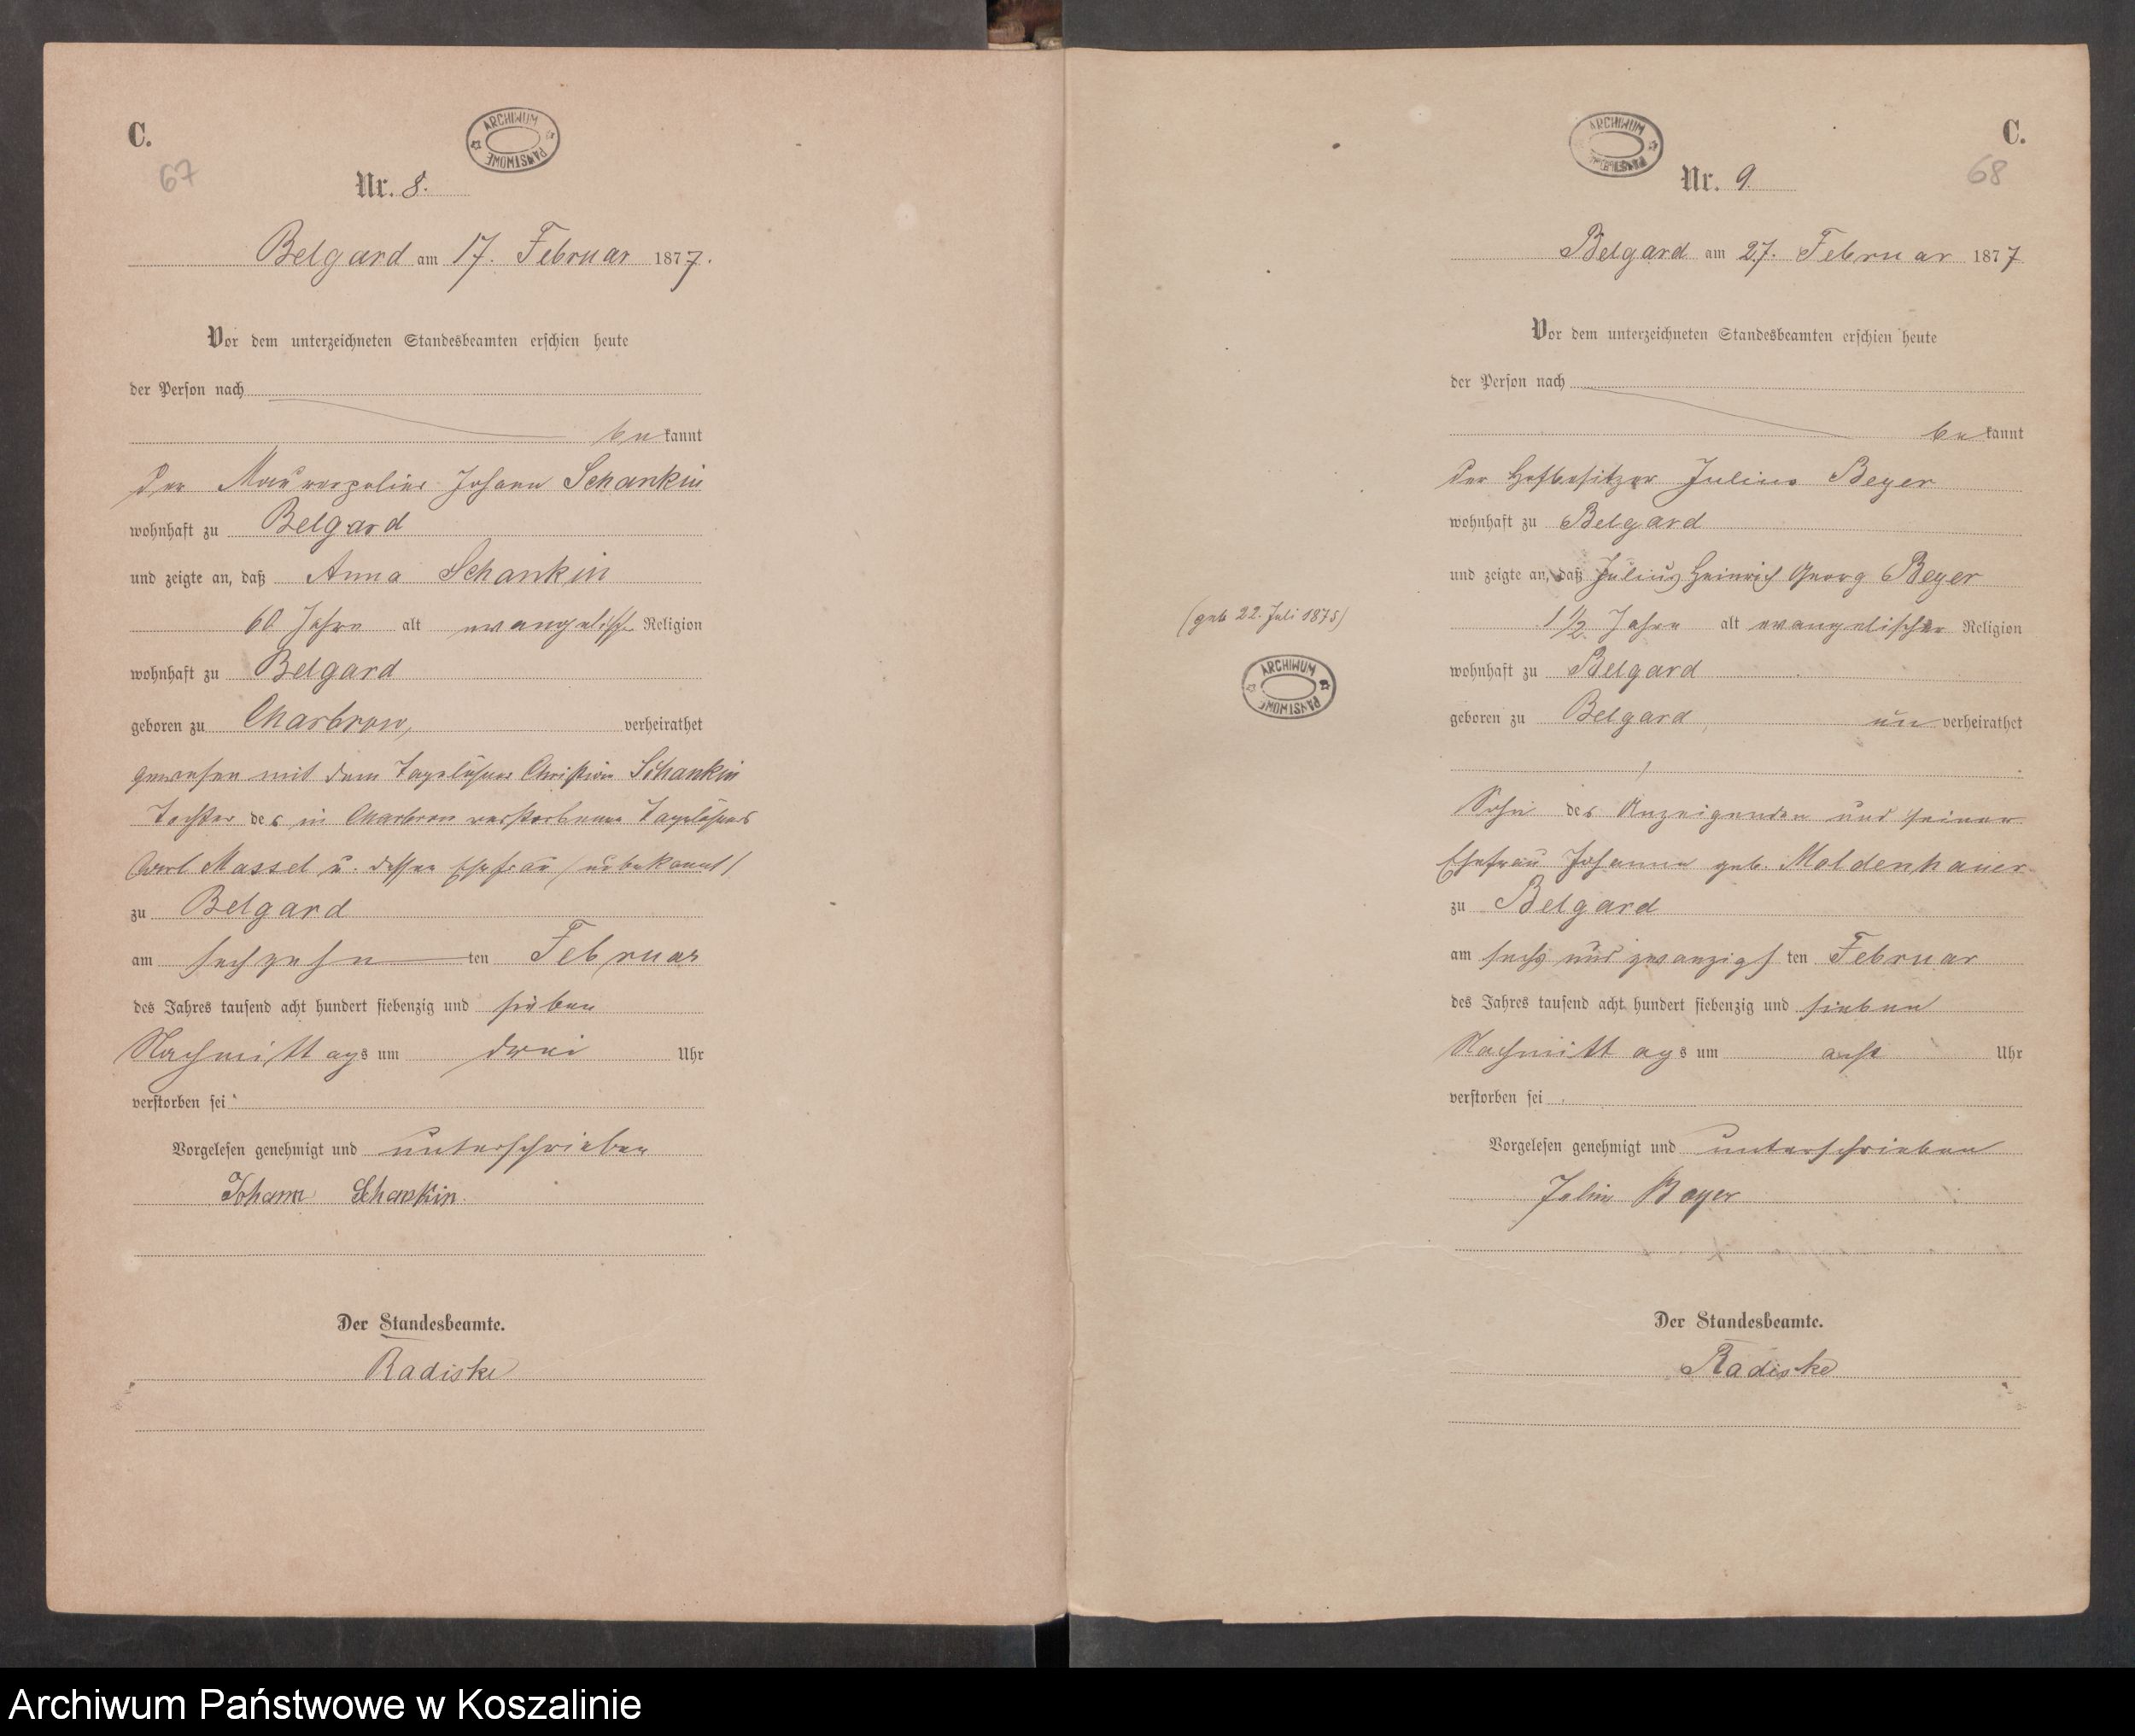 C.
ARCHIWUM PAŃSTWOWE
67
Nr. 8.
Belgard am 17. Februar 1877.
Vor dem unterzeichneten Standesbeamten erschien heute
der Person nach
bekannt
der Maurerpolier Johann Schankin
wohnhaft zu Belgard
und zeigte an, daß Anna Schankin
60 Jahre alt evangelischer Religion
wohnhaft zu Belgard
geboren zu Charbrow, verheirathet
gewesen mit dem Tagelöhner Christian Schankin
Tochter des in Charbrow verstorbenen Tagelöhners
Carl Massel u. dessen Ehefrau (unbekannt)
zu Belgard
am sechzehnten Februar
des Jahres tausend acht hundert siebenzig und sieben
Nachmittags um drei Uhr
verstorben sei
Vorgelesen genehmigt und unterschrieben
Johann Schankin.
Der Standesbeamte.
Radiske
C.
ARCHIWUM PAŃSTWOWE
68
Nr. 9.
Belgard am 27. Februar 1877
Vor dem unterzeichneten Standesbeamten erschien heute
der Person nach
bekannt
der Hofbesitzer Julius Beyer
wohnhaft zu Belgard
und zeigte an, daß Julius Heinrich Georg Beyer
(geb 22. Juli 1875)
1 1/2 Jahre alt evangelischer Religion
ARCHIWUM PAŃSTWOWE
wohnhaft zu Belgard
geboren zu Belgard, unverheirathet
Sohn des Anzeigenden und seiner
Ehefrau Johanna geb. Moldenhauer
zu Belgard
am sechs und zwanzigsten Februar
des Jahres tausend acht hundert siebenzig und sieben
Nachmittags um acht Uhr
verstorben sei
Vorgelesen genehmigt und unterschrieben
Julius Beyer
Der Standesbeamte.
Radiske
Archiwum Państwowe w Koszalinie